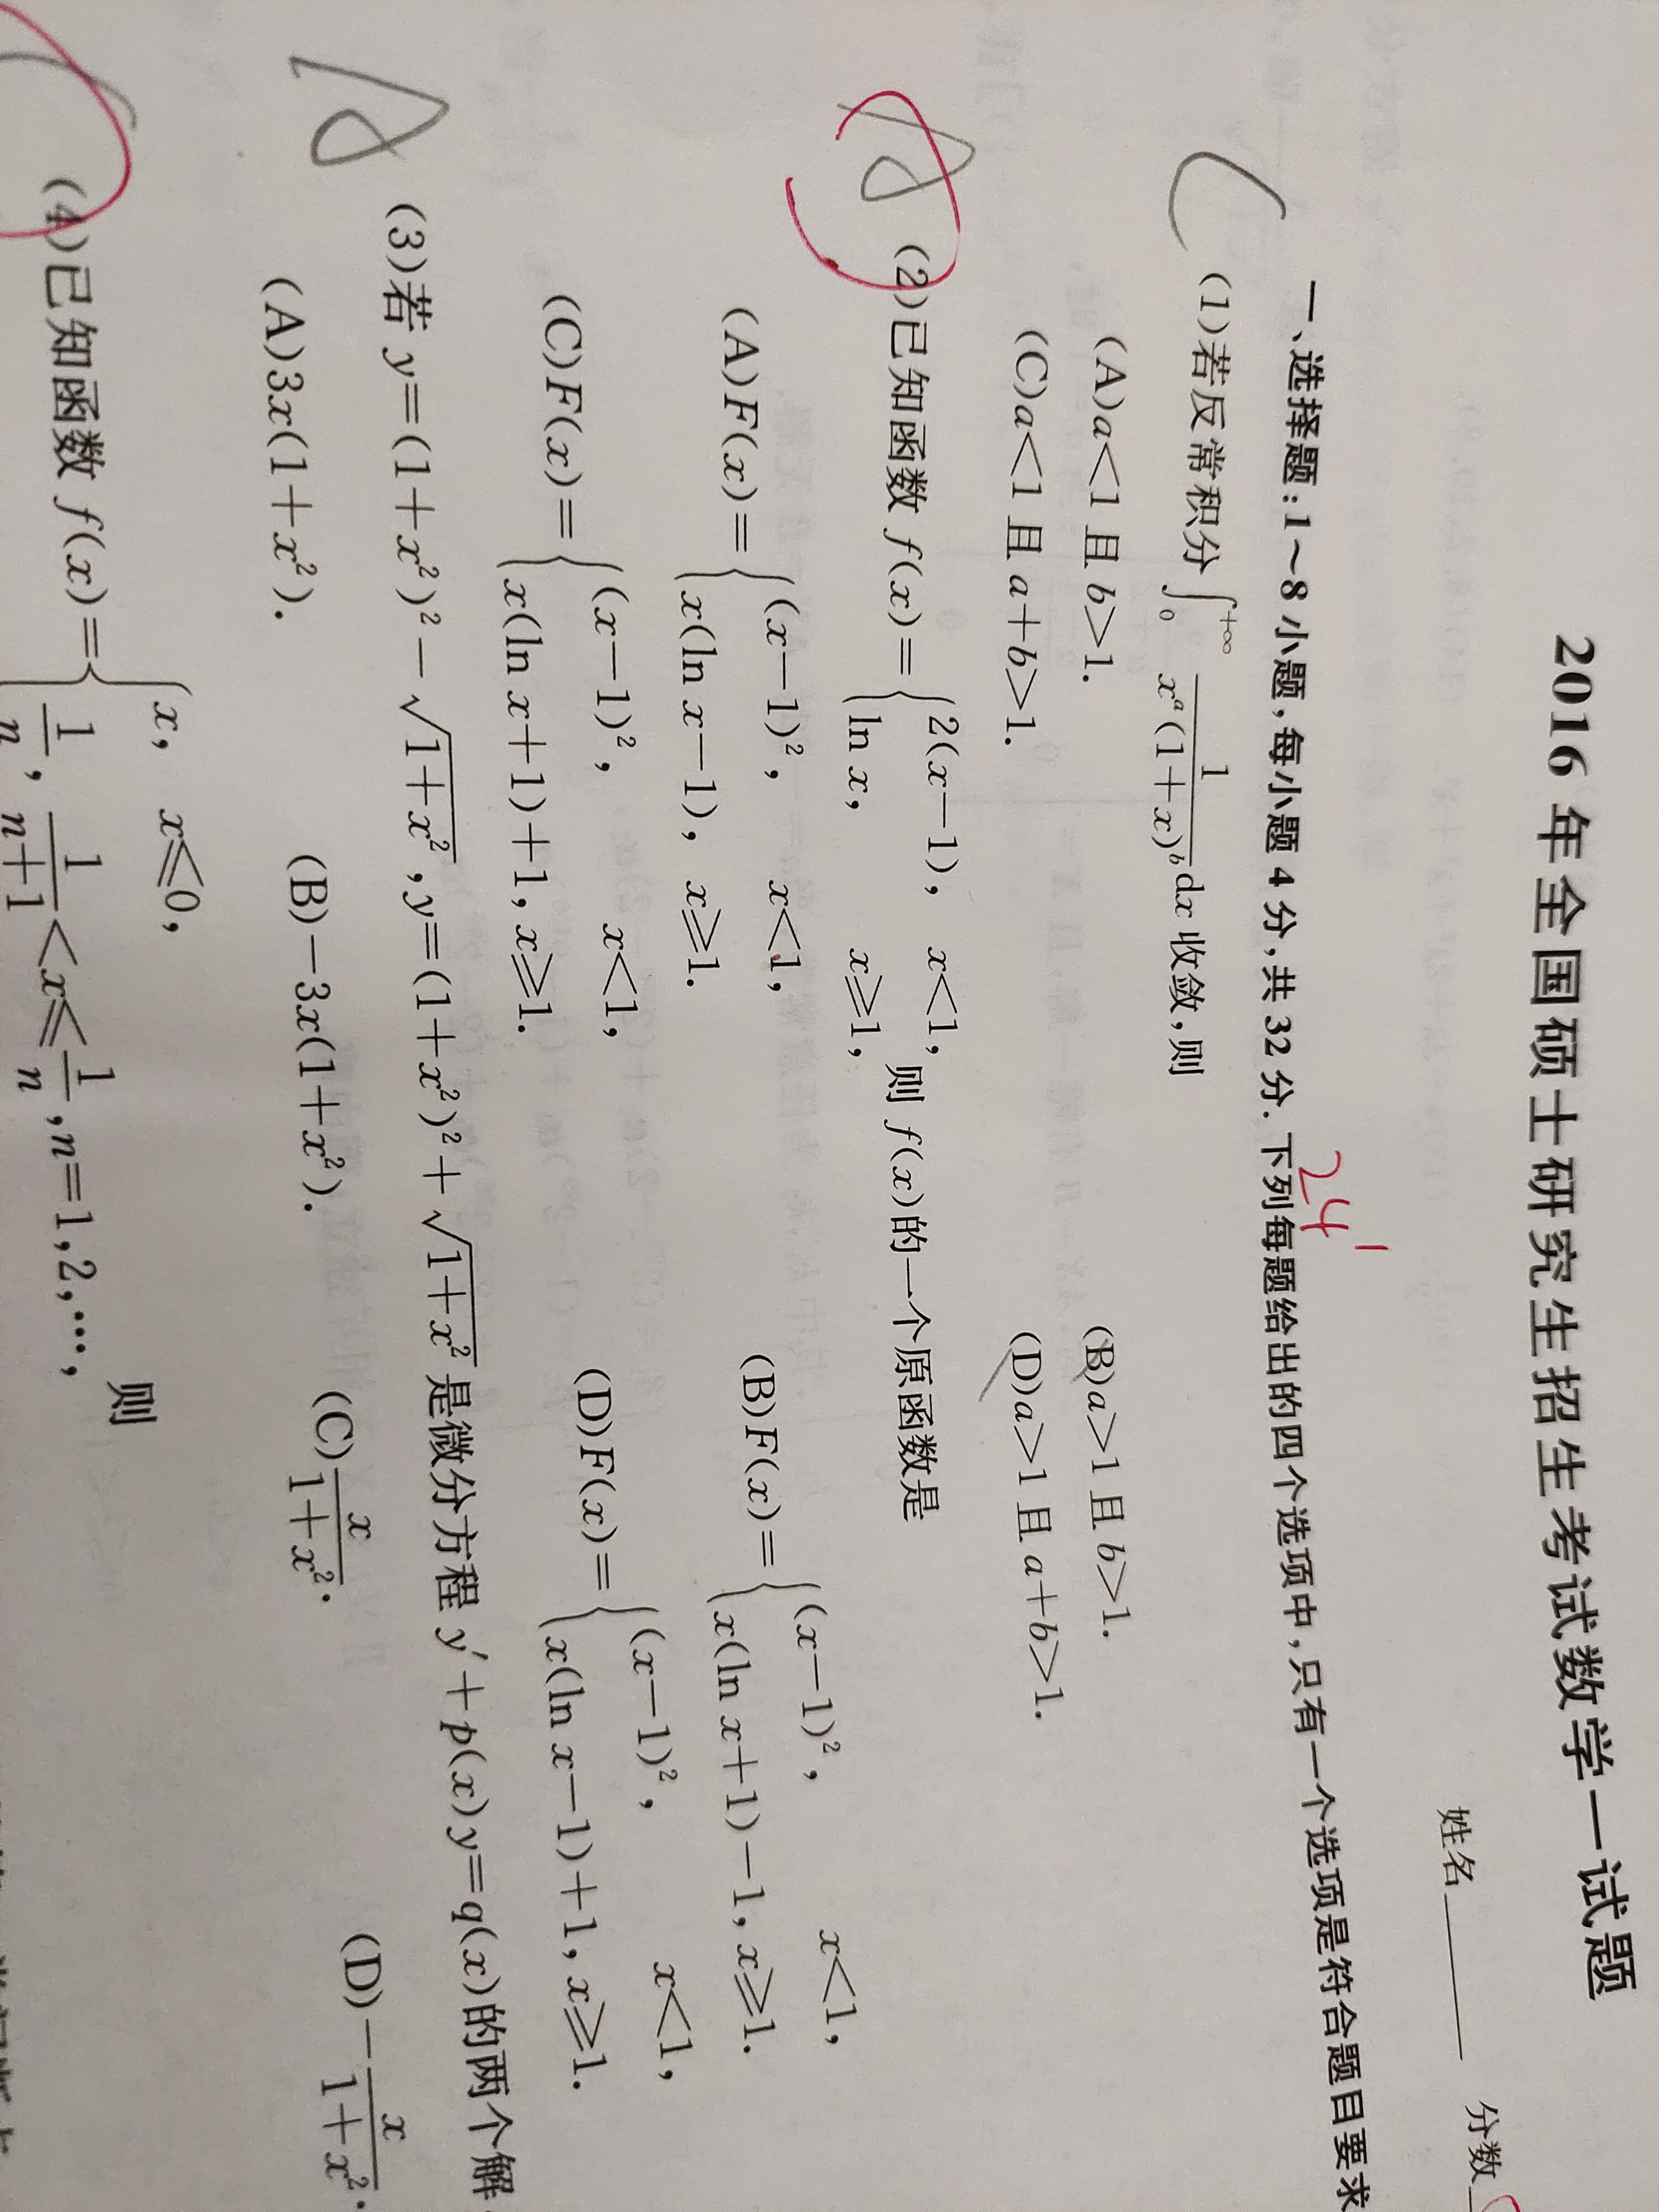 2016年全国硕士研究生招生考试数学一试题
姓名______ 分数
24
一、选择题:1~8小题,每小题4分,共32分.下列每题给出的四个选项中,只有一个选项是符合题目要求
C
(1)若反常积分∫₀^{+∞} 1/(xᵃ(1+x)ᵇ)dx收敛,则
(A)a<1且b>1. (B)a>1且b>1.
(C)a<1且a+b>1. (D)a>1且a+b>1.
(2)已知函数f(x)={2(x-1), x<1, ln x, x≥1, 则f(x)的一个原函数是
(A)F(x)={(x-1)², x<1, x(ln x-1), x≥1. (B)F(x)={(x-1)², x<1, x(ln x+1)-1, x≥1.
(C)F(x)={(x-1)², x<1, x(ln x+1)+1, x≥1. (D)F(x)={(x-1)², x<1, x(ln x-1)+1, x≥1.
A
(3)若y=(1+x²)²-√(1+x²),y=(1+x²)²+√(1+x²)是微分方程y′+p(x)y=q(x)的两个解
(A)3x(1+x²). (B)-3x(1+x²). (C)x/(1+x²). (D)-x/(1+x²).
(4)已知函数f(x)={x, x≤0, 1/n, 1/(n+1)<x≤1/n,n=1,2,…, 则